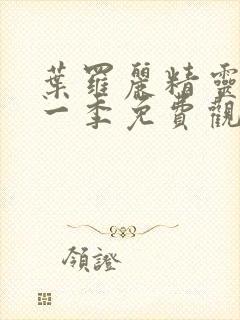 葉羅麗精靈
一季免費觀
領證